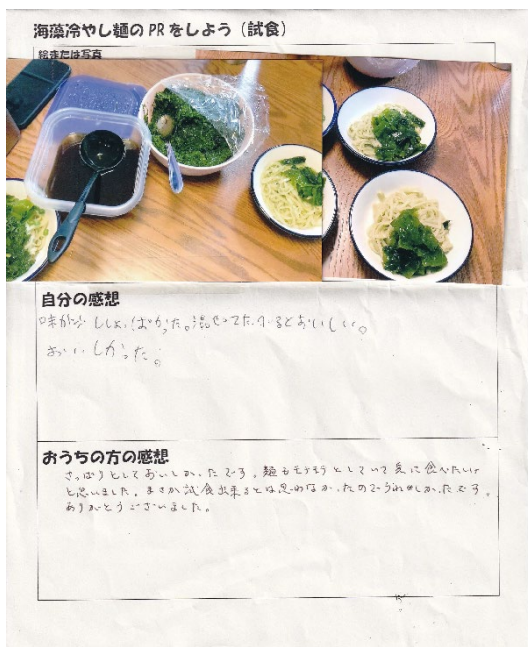 海藻冷やし麺のPRをしよう（試食）
絵または写真
自分の感想
味が少ししょっぱかった。混ぜってたべるとおいしい。
おいしかった。
おうちの方の感想
さっぱりとしておいしかったです。麺もモチモチとしていて夏に食べたいな
と思いました。まさか試食出来るとは思わなかったのでうれしかったです。
ありがとうございました。